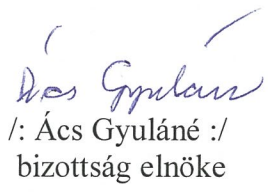 Ács Gyuláné
/: Ács Gyuláné :/
bizottság elnöke